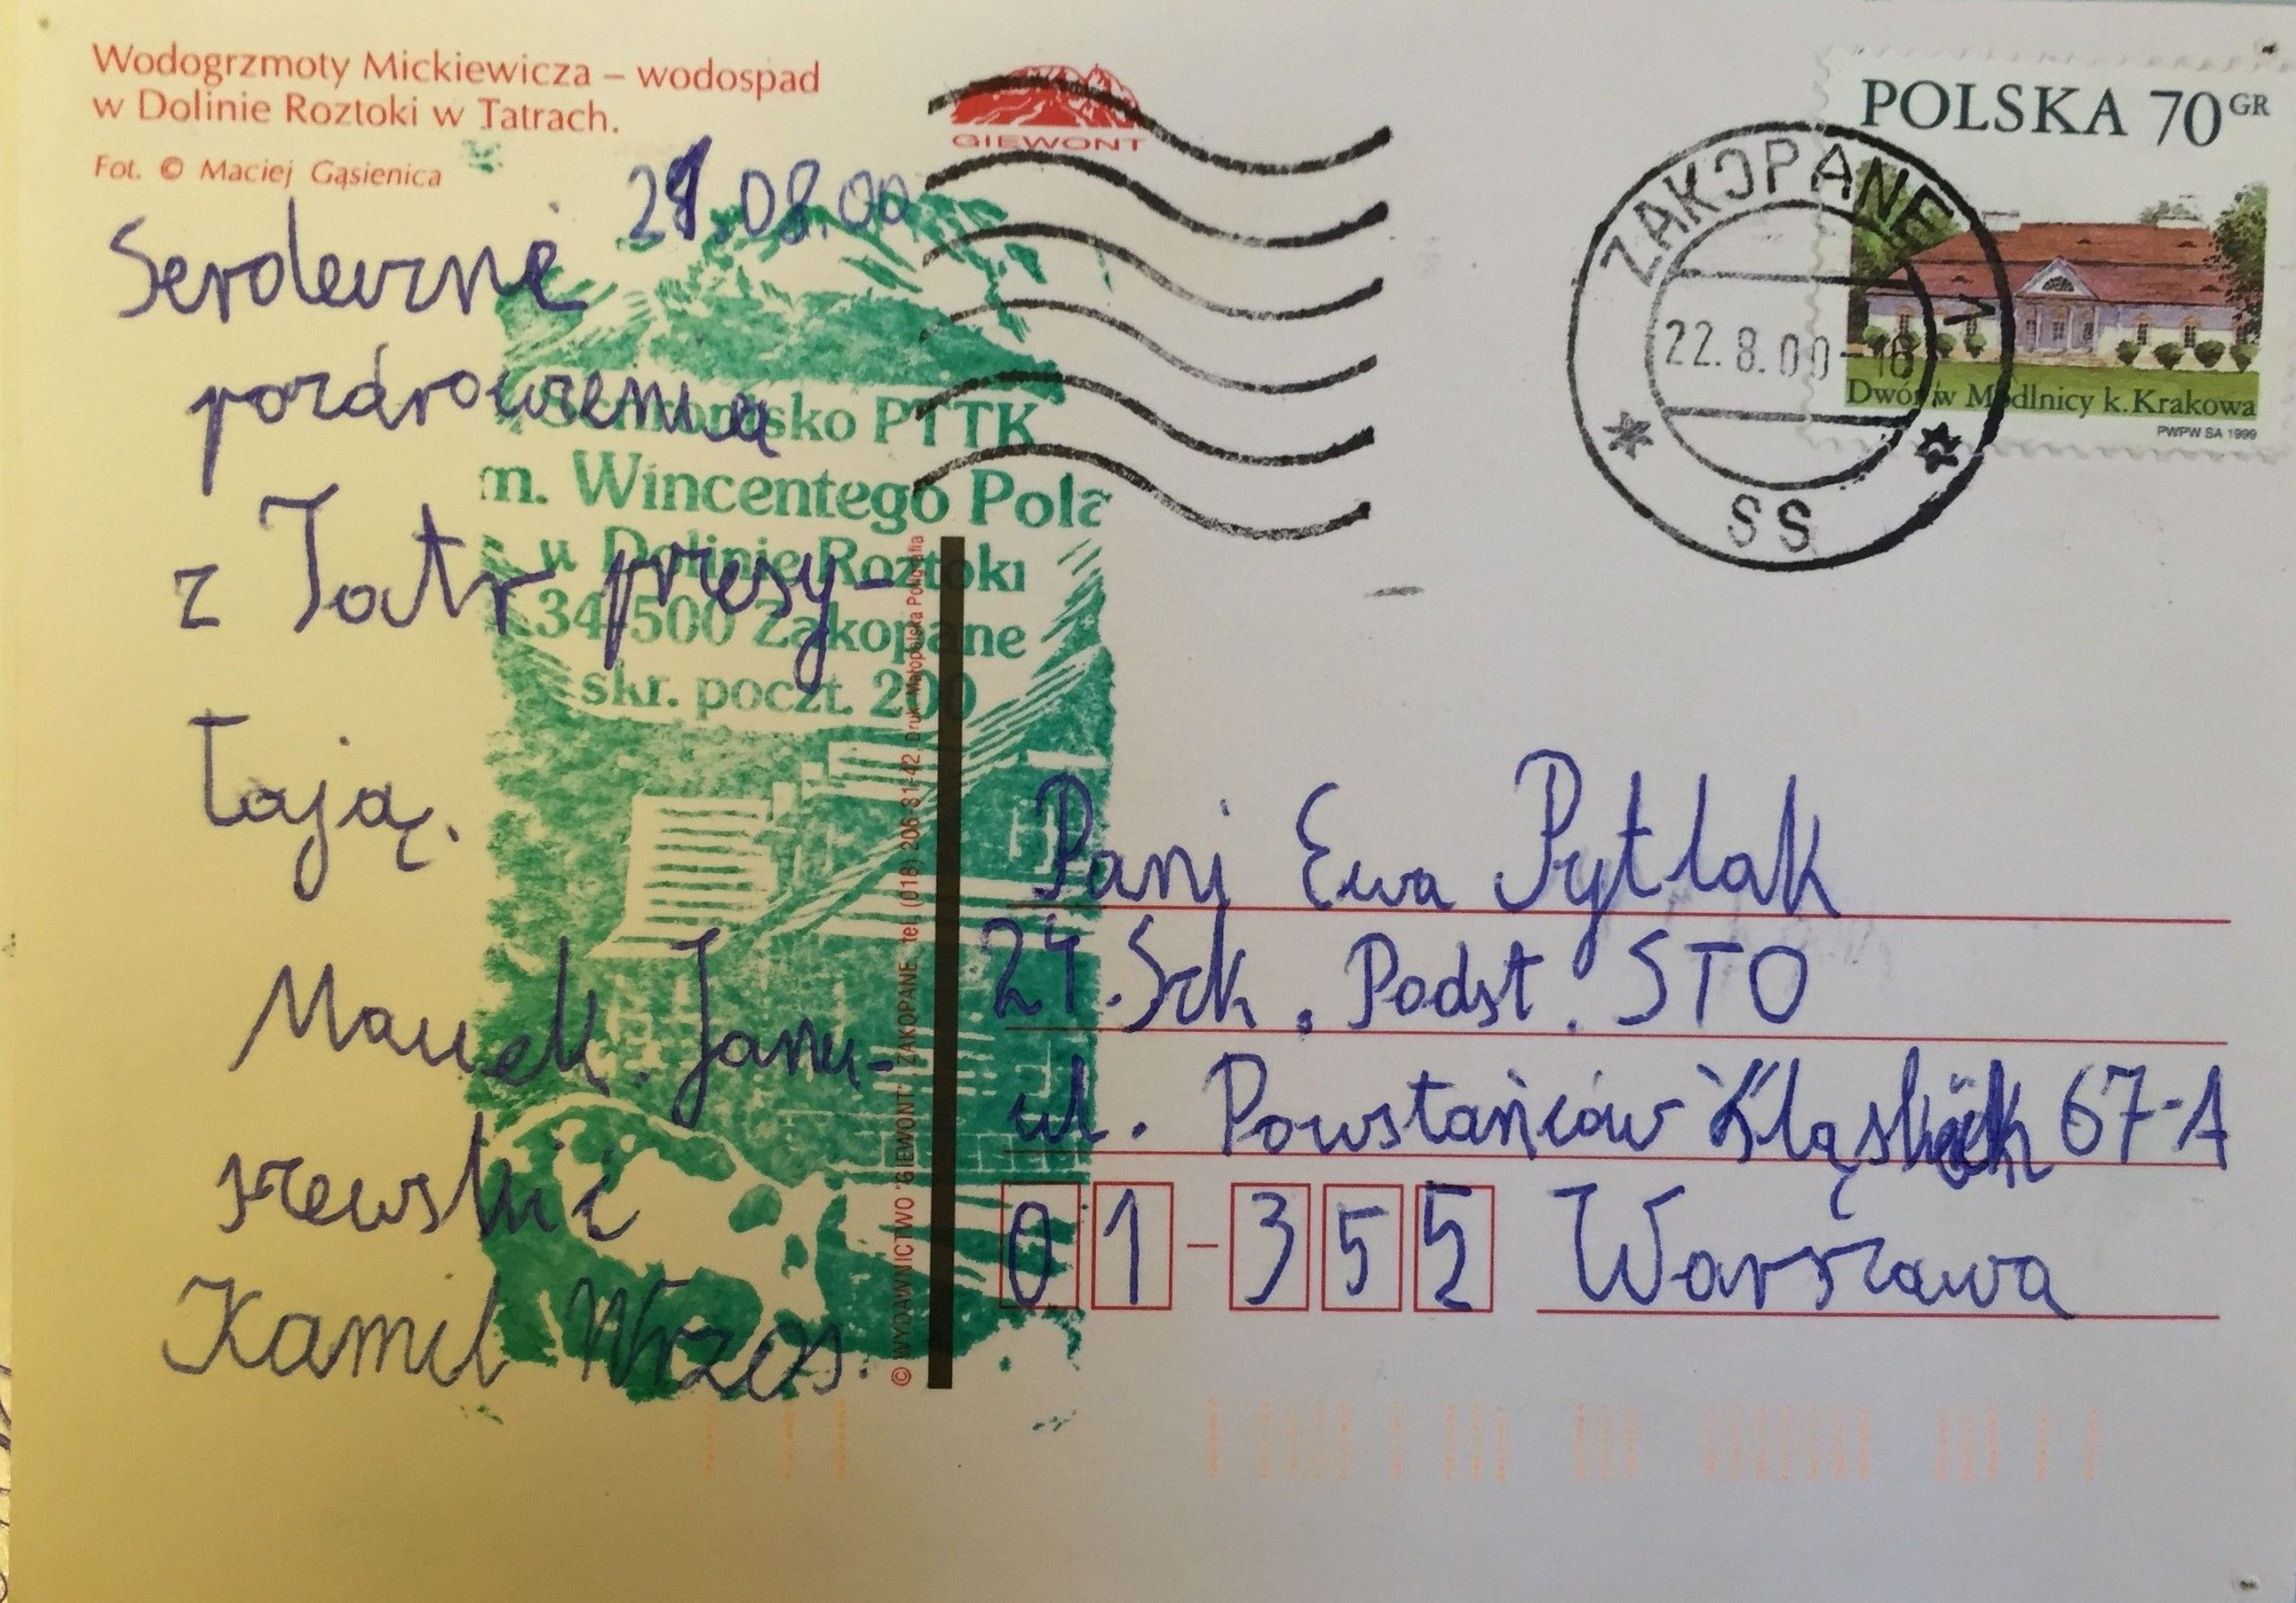 Wodogrzmoty Mickiewicza – wodospad
w Dolinie Roztoki w Tatrach.
Fot. © Maciej Gąsienica
GIEWONT
POLSKA 70 GR
Dwór w Modlnicy k. Krakowa
PWPW SA 1999
ZAKOPANE
22.8.00-16
SS
21.08.00
Serdeczne
pozdrowienia
z Tatr przesy-
łają.
Maciek. Janu-
szewski i
Kamil Wrzos.
Schronisko PTTK
m. Wincentego Pola
w Dolinie Roztoki
34-500 Zakopane
skr. poczt. 200
© WYDAWNICTWO "GIEWONT" ZAKOPANE, tel. (018) 206-81-42, Druk: Małopolska Poligrafia
Pani Ewa Pytlak
24. Szk. Podst. STO
ul. Powstańców 67-A
01-355 Warszawa